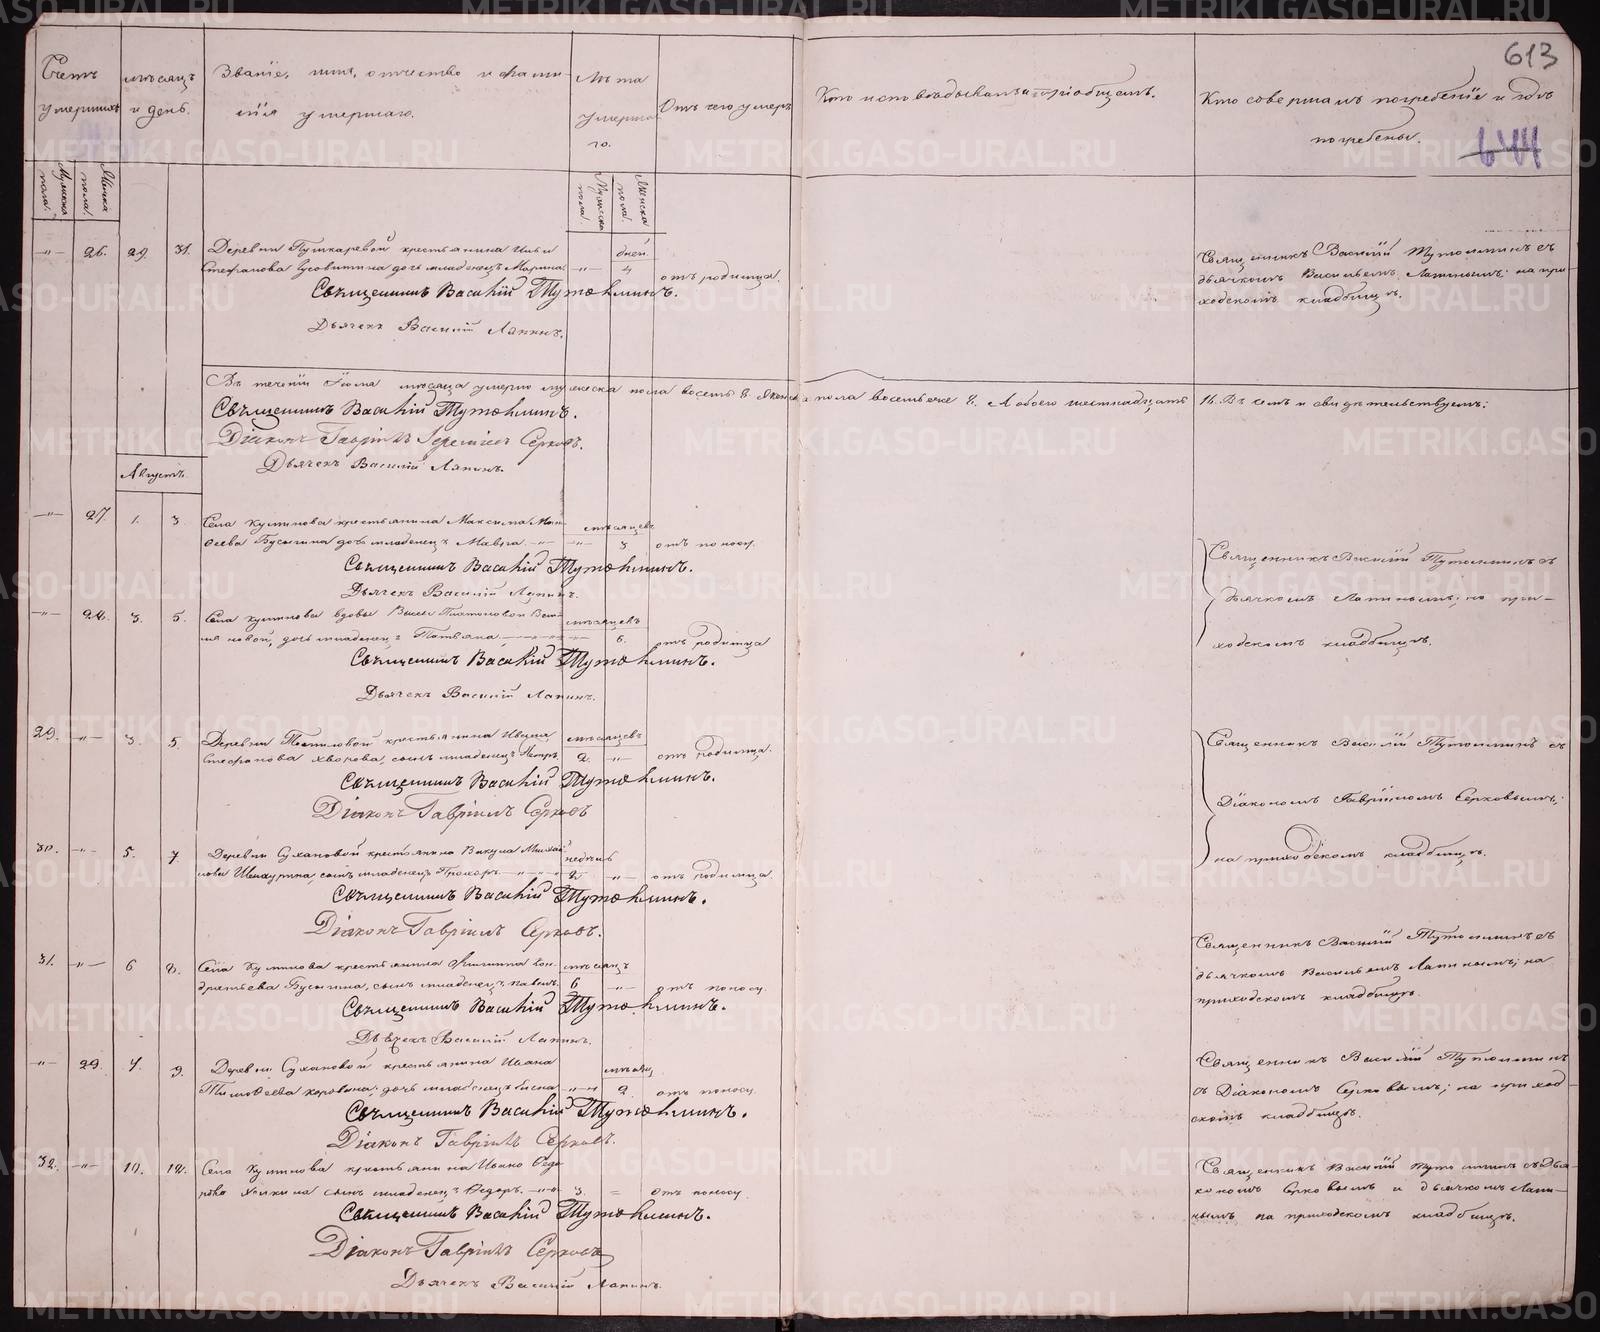 613
644
Счетъ умершихъ
мѣсяцъ и день.
Званіе, имя, отчество и фами-
лія умершаго.
Лѣта умершаго.
Отъ чего умеръ
Кто исповѣдывалъ и пріобщалъ.
Кто совершалъ погребеніе и гдѣ
погребены.
Мужеска пола.
Женска пола.
Мужеска пола.
Женска пола.
—"— 26. 29. 31.
Деревни Пушкаревой крестьянина Ильи
Стефанова дочь младенецъ Марина
дней
—"— 4
отъ родимца.
Священникъ Василій Тутолминъ.
Дьячекъ Василій Лапинъ.
Священникъ Василій Тутолминъ съ
дьячкомъ Васильемъ Лапинымъ; на при-
ходскомъ кладбищѣ.
Въ теченіи Іюля мѣсяца умерло мужеска пола восемь 8. Женска пола восемь же 8. А обоего шестнадцать 16. Въ чемъ и свидѣтельствуемъ:
Священникъ Василій Тутолминъ.
Діаконъ Гавріилъ Серковъ.
Дьячекъ Василій Лапинъ.
Августъ.
—"— 27. 1. 3.
Села Куминова крестьянина Максима
Бусыгина дочь младенецъ Мавра. —"—
мѣсяцевъ
—"— 3
отъ поносу.
Священникъ Василій Тутолминъ.
Дьячекъ Василій Лапинъ.
Священникъ Василій Тутолминъ съ
дьячкомъ Лапинымъ; на при-
ходскомъ кладбищѣ.
—"— 28. 3. 5.
Села Куминова вдовы
дочь младенецъ Татьяна
мѣсяцевъ
—"— 6.
отъ родимца
Священникъ Василій Тутолминъ.
Дьячекъ Василій Лапинъ.
29. —"— 3. 5.
Деревни крестьянина Ивана
Стефанова Хворова, сынъ младенецъ Петръ
мѣсяцевъ
2. —"—
отъ родимца.
Священникъ Василій Тутолминъ.
Діаконъ Гавріилъ Серковъ
Священникъ Василій Тутолминъ съ
Діакономъ Гавріиломъ Серковымъ;
на приходскомъ кладбищѣ.
30. —"— 5. 7.
Деревни Сухановой крестьянина Вакула Михай-
лова сынъ младенецъ Прохоръ
недѣль
2 —"—
отъ родимца.
Священникъ Василій Тутолминъ.
Діаконъ Гавріилъ Серковъ.
31. —"— 6 8.
Села Куминова крестьянина Филиппа Кон-
дратьева Бусыгина, сынъ младенецъ Павелъ.
мѣсяцъ
6 —"—
отъ поносу.
Священникъ Василій Тутолминъ.
Дьячекъ Василій Лапинъ.
Священникъ Василій Тутолминъ съ
дьячкомъ Васильемъ Лапинымъ; на
приходскомъ кладбищѣ.
—"— 29. 7. 9.
Деревни Сухановой крестьянина Ивана
Тимофеева Коровина; дочь младенецъ
мѣсяц
—"— 2
отъ поносу.
Священникъ Василій Тутолминъ.
Діаконъ Гавріилъ Серковъ.
Священникъ Василій Тутолминъ
съ Діакономъ Серковымъ; на приход-
скомъ кладбищѣ.
32. —"— 10. 12.
Села Куминова крестьянина Ивана Федо-
рова сынъ младенецъ Федоръ. —"—
3. —
отъ поносу.
Священникъ Василій Тутолминъ.
Діаконъ Гавріилъ Серковъ
Дьячекъ Василій Лапинъ.
Священникъ Василій Тутолминъ съ Діа-
кономъ Серковымъ и дьячкомъ Лапи-
нымъ на приходскомъ кладбищѣ.
METRIKI.GASO-URAL.RU